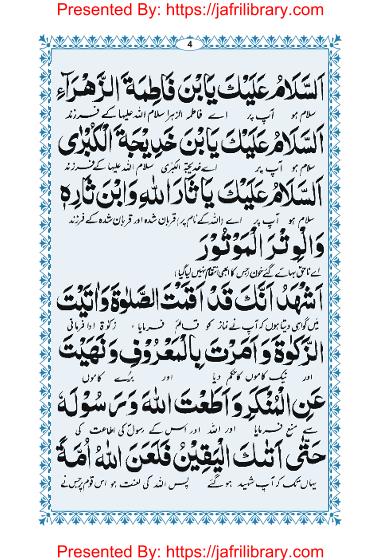 Presented By: https://jafrilibrary.com
4
اَلسَّلَامُ عَلَيْكَ يَابْنَ فَاطِمَةَ الزَّهْرَآءِ
سلام ہو آپ پر اے فاطمہ الزہرا سلام اللہ علیہا کے فرزند
اَلسَّلَامُ عَلَيْكَ يَابْنَ خَدِيْجَةَ الْكُبْرٰى
سلام ہو آپ پر اے خدیجۃ الکبریٰ سلام اللہ علیہا کے فرزند
اَلسَّلَامُ عَلَيْكَ يَا ثَارَ اللهِ وَابْنَ ثَارِهٖ
سلام ہو آپ پر اے (اللہ کے نام پر) قربان شدہ اور قربان شدہ کے فرزند
وَالْوِتْرَ الْمَوْتُوْرَ
اے ناحق بہائے گئے خون (جس کا ابھی انتقام نہیں لیا گیا)
اَشْهَدُ اَنَّكَ قَدْ اَقَمْتَ الصَّلٰوةَ وَاٰتَيْتَ
میں گواہی دیتا ہوں کہ آپ نے نماز کو قائم فرمایا، زکوٰۃ ادا فرمائی
الزَّكٰوةَ وَ اَمَرْتَ بِالْمَعْرُوْفِ وَ نَهَيْتَ
اور نیک کاموں کا حکم دیا اور برے کاموں
عَنِ الْمُنْكَرِ وَ اَطَعْتَ اللهَ وَ رَسُوْلَهٗ
سے منع فرمایا اور اللہ اور اس کے رسول کی اطاعت کی
حَتّٰى اَتٰىكَ الْيَقِيْنُ فَلَعَنَ اللهُ اُمَّةً
یہاں تک کہ آپ شہید ہو گئے پس اللہ کی لعنت ہو اس قوم پر جس نے
Presented By: https://jafrilibrary.com